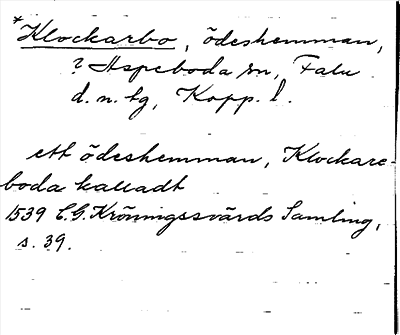 *Klockarbo, ödeshemman,
? Aspeboda sn, Falu
d. n. tg, Kopp. l.
ett ödeshemman, Klockare-
boda kalladt
1539 C.G. Kröningssvärds Samling,
s. 39.